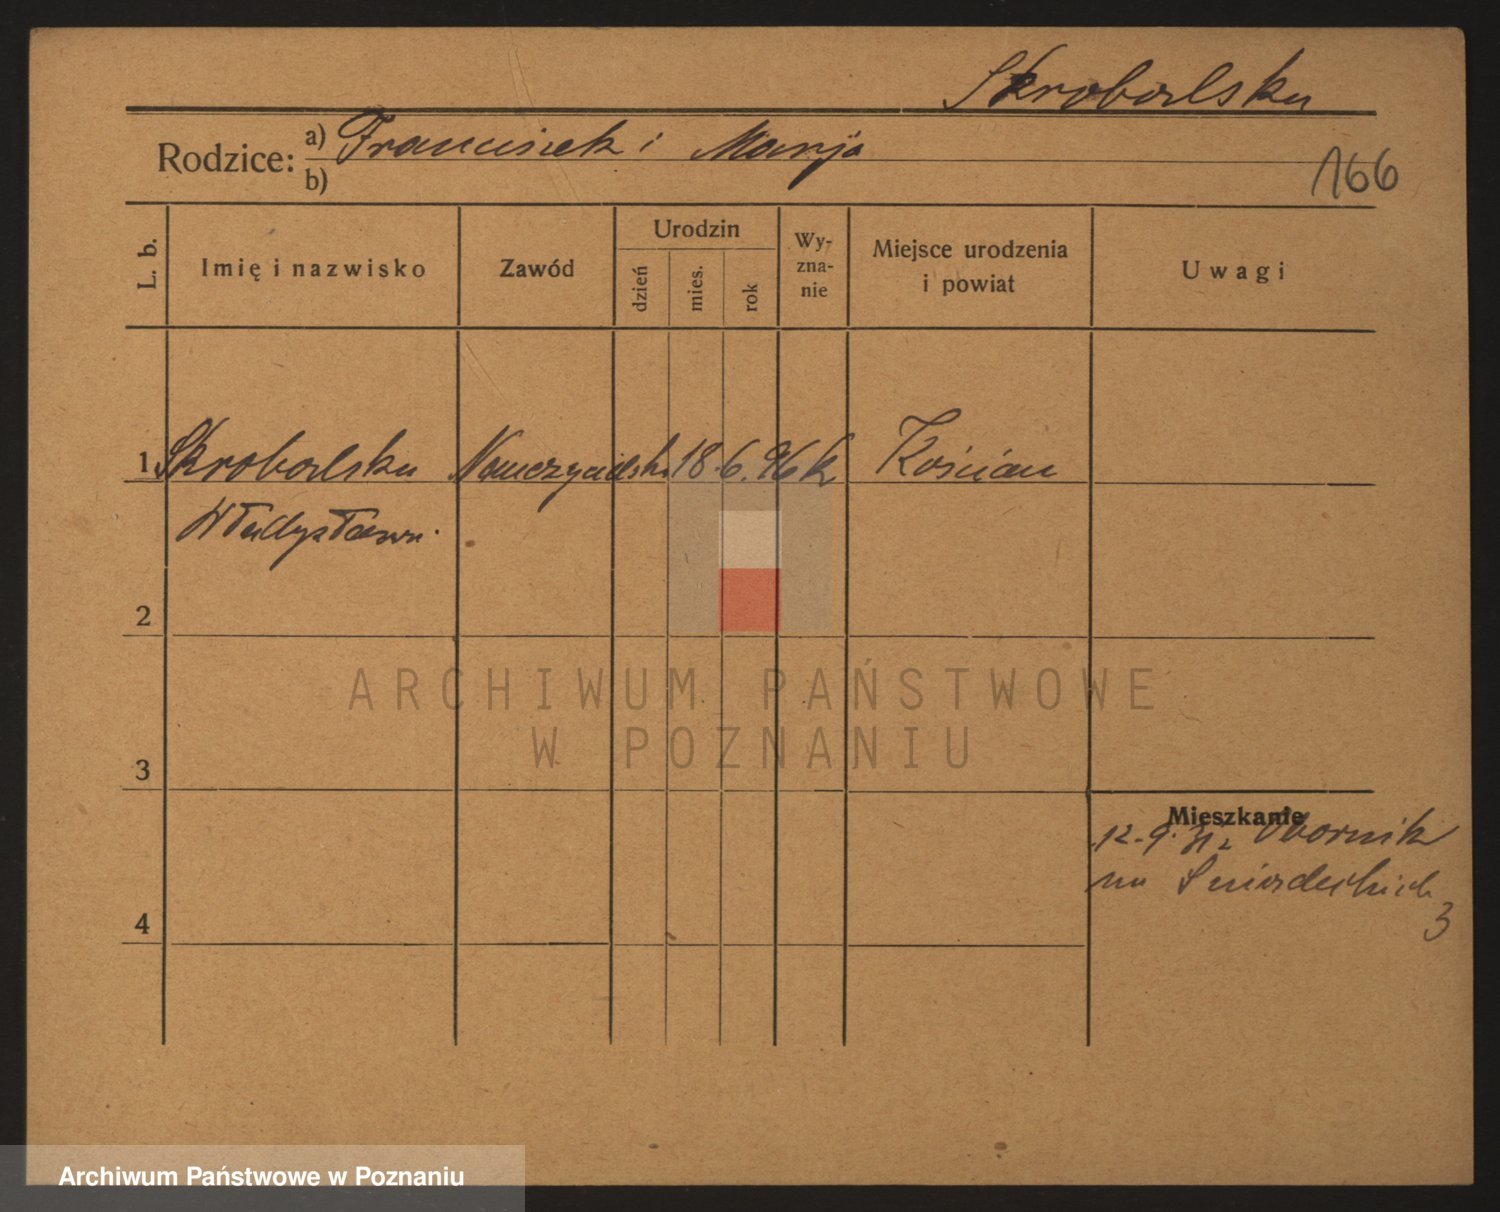 Skrobalska
Rodzice: a) Franciszek i Marja
b)
166
L. b.
Imię i nazwisko
Zawód
Urodzin
dzień
mies.
rok
Wy-
zna-
nie
Miejsce urodzenia
i powiat
Uwagi
1 Skrobalska Nauczycielka 18. 6. 96 k Kościan
Władysława
2
3
4
Mieszkanie
12.9.31 z Obornik
na Śniadeckich
3
ARCHIWUM PAŃSTWOWE
W POZNANIU
Archiwum Państwowe w Poznaniu